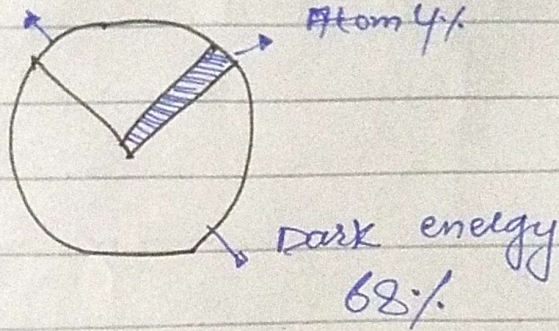 Atom 4%
Dark energy
68%